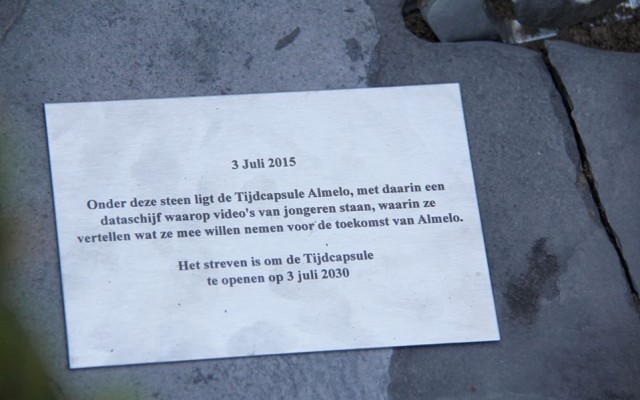 3 Juli 2015
Onder deze steen ligt de Tijdcapsule Almelo, met daarin een
dataschijf waarop video's van jongeren staan, waarin ze
vertellen wat ze mee willen nemen voor de toekomst van Almelo.
Het streven is om de Tijdcapsule
te openen op 3 juli 2030